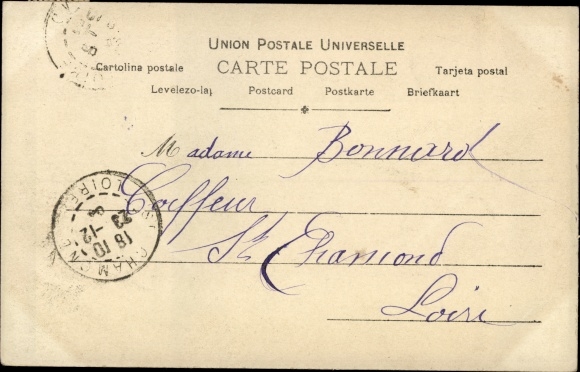 UNION POSTALE UNIVERSELLE
Cartolina postale CARTE POSTALE Tarjeta postal
Levelezo-lap Postcard Postkarte Briefkaart
Madame Bonnard
Coiffeur
St Chamond
Loire
ST CHAMOND
LOIRE
18 10
23 -12